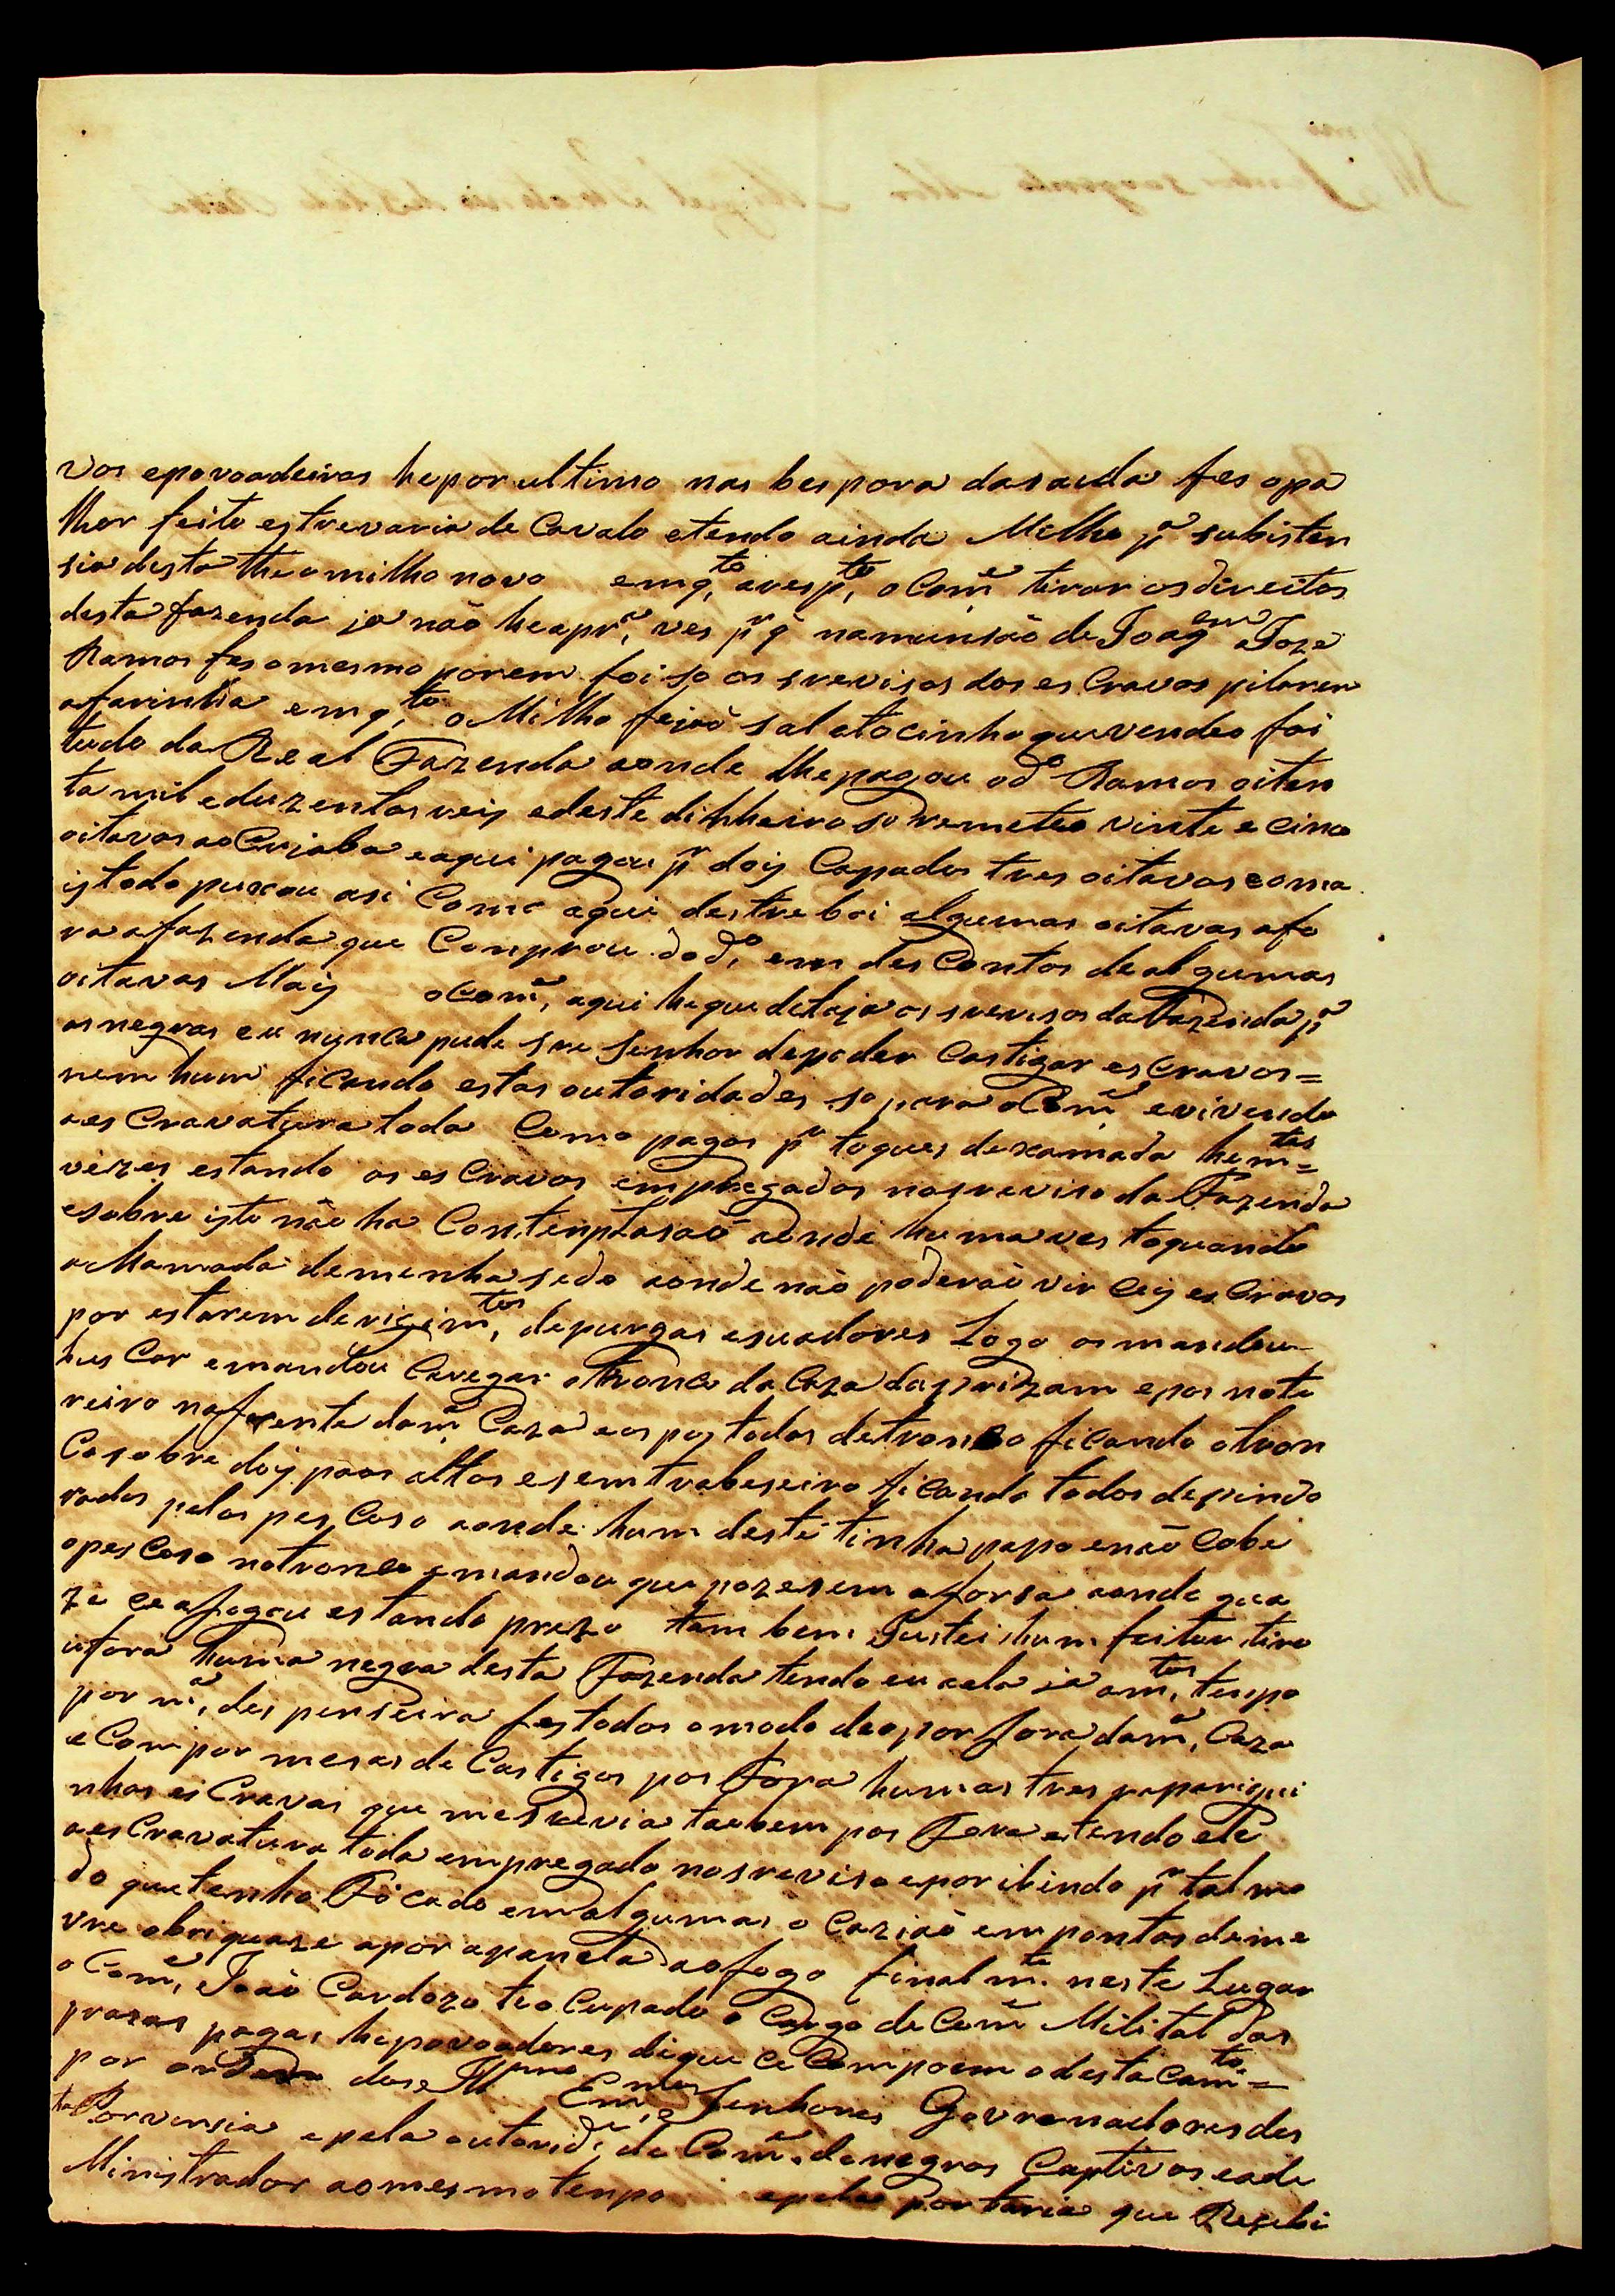 vos epovoadeiros heporultimo nas bespora dasaida fes opa
lhor feito estrevaria de Cavalo etendo ainda Milho p.ª subisten
sia desta the omilho novo emq.to aresp.to o Com.e tirar osdireitos
desta fazenda ja não heapr.ª ves p.r q̃ namunsão de Joaq.em Joze
Ramos fes omesmo porem foi so os srevisos dos es Cravos pilaren
afarinha emq.to o Milho feijaõ sal etocinho quevendeo foi
tudo da Real Fazenda aonde lhepagou od.o Ramos oiten
ta mil eduzentos reis edeste dinheiro so remeteo vinte e cinco
oitavas ao Cujaba eaqui pagou p.r dois Capados tres oitavas eoma
istodo puxou asi Como aqui destreboi algumas oitavas afo
ra afazenda que Comprou dod.o em des Contos dealgumas
oitavas Mais oCom.e aqui heque detaja os srevisos dafazenda p.ª
os negros eu nunca pude sre senhor depoder Castigar es Cravos=
nem hum ficando estas autoridades so para oCom.e evivendo
aes Cravatura toda Como pagos p.r toques dexamada hem.tas=
vezes estando os es Cravos empregados nosreviso da Fazenda
esobre isto não ha Contenplasaõ aonde huma ves toquando
aHamada demenhasedo aonde não poderaõ vir Ceis es Cravos
por estarem derigim.tos depurgas esuadores Logo osmandou
bus Car emandou Caregar otronco da Caza daprizam epos note
reiro nafrente dam.ª Caza eos pos todos detronco ficando otron
Co sobre dois paos altos esemtrabeseiro ficando todos depindo
rados pelos pes Coso aonde hum deste tinha papo enão Cabi
opes Coso notronco emandou que pozesem aforsa aonde qua
ze ce afogou estando prezo tambem Justei hum feitor tiro
ufora huma negra desta Fazenda tendo eu aela ja am.tos tenpo
por m.ª des penseira fes todos omodo deapor fora dam.ª Caza
e Com por mesas de Castigos pos fora humas tres raparigui
nhas es Cravas que mesrevia taobem pos Fora etendo ele
aes Cravatura toda empregado nosreviso eporibindo p.r tal mo
do quetenho Ficado emalgumas o Caziaõ em pontos deme
vre obriguaze apor apanela aofogo finalm.te neste Lugar
o Com.e Joaõ Cardozo teo Cupado o Cargo de Com.e Militar das
prasas pagas hepovoadores digue ce Compoem odesta Com.ta=
por ordem dos Ill.mos Em.mos Senhores Govrenadores des
ta Porvensia epela autorid.e de Com.e denegros Captivos eade
Ministrador aomesmotenpo epela portaria que Resebi